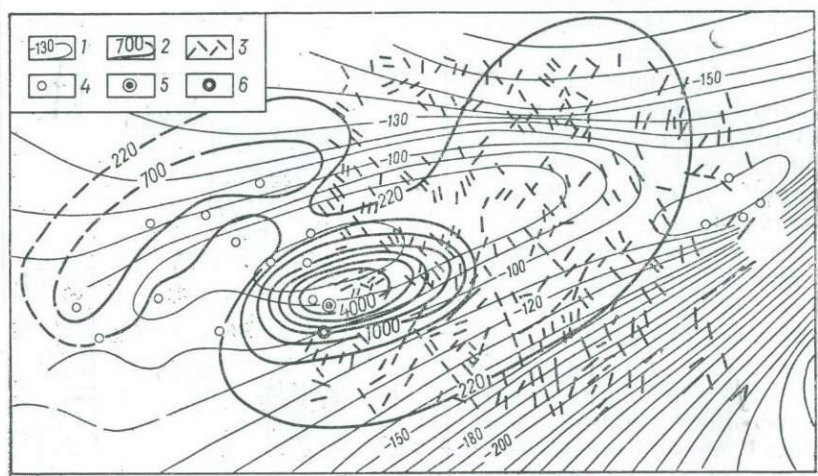 -130 1 700 2 3
4 5 6
-150
-130
220
700
-100
220
-100
4000
-120
1000
220
-150
-180
-200